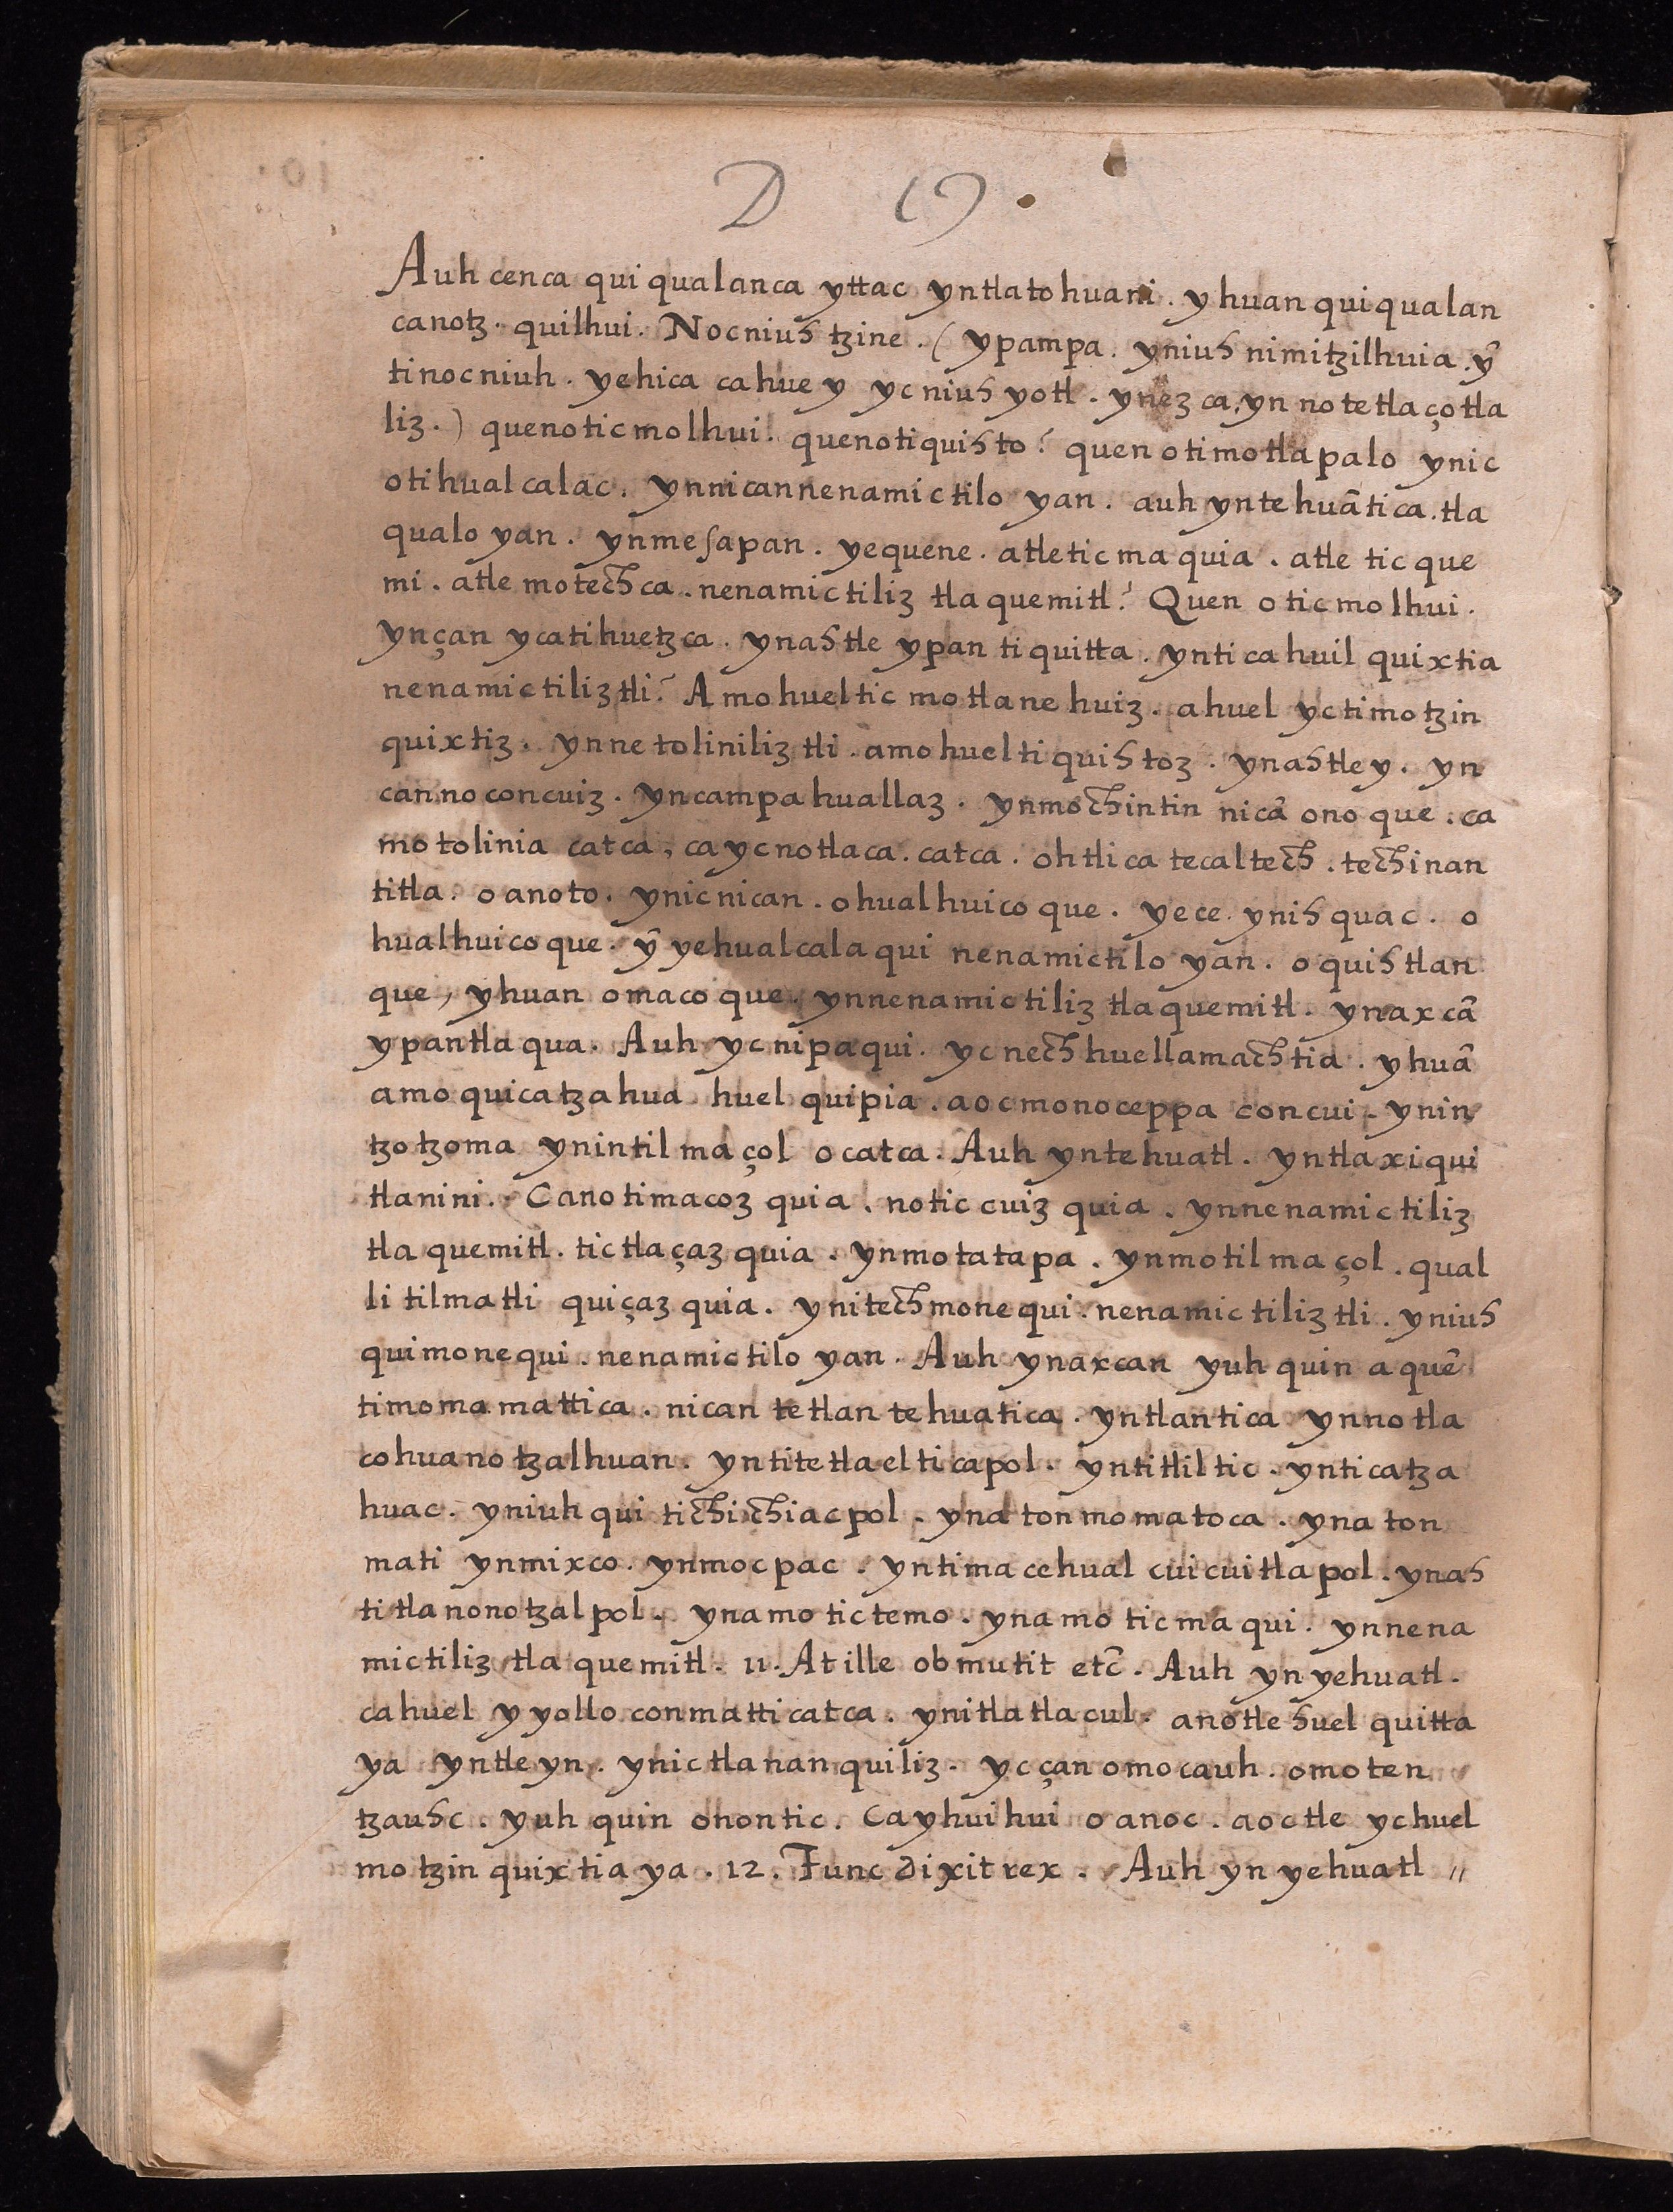 D (1).
Auh cenca quiqualanca yttac yntlatohuani. yhuan quiqualan
canotz. quilhui. Nocniuh tzine. (ypampa. yniuh nimitzilhuia. ỹ
tinocniuh. yehica cahuey ycniuh yotl. ynezca, yn notetlaçotla
liz.) quenoticmolhui. quenotiquihto? quen otimotlapalo ynic
otihualcalac. ynnicannenamictilo yan. auh yntehuãtica. tla
qualo yan. ynmesapan. yequene. atleticmaquia. atle tic que
mi. atle motechca. nenamictiliz tlaquemitl? Quen oticmolhui.
ynçan ycatihuetzca. ynahtle ypan tiquitta. ynticahuilquixtia
nenamictiliztli? Amohueltic motlanehuiz. ahuel yctimotzin
quixtiz. ynnetoliniliztli. amohueltiquihtoz. ynahtley. yn
cannoconcuiz. yncampahuallaz. ynmochintin nicã onoque. ca
motolinia catca, caycnotlaca. catca. ohtlica tecaltech. techinan
titla. oanoto. ynicnican. ohualhuicoque. yece. ynihquac. o
hualhuicoque. ỹ yehualcalaqui nenamictilo yan. oquihtlan
que, yhuan omacoque. ynnenamictiliz tlaquemitl. ynaxcã
ypantlaqua. Auh ycnipaqui. ycnechhuellamachtia. yhuã
amoquicatzahua huel quipia. aocmonoceppa concui. ynin
tzotzoma ynintilmaçol ocatca. Auh yntehuatl. yntlaxiqui
tlanini. Canotimacoz quia. noticcuiz quia. ynnenamictiliz
tlaquemitl. tictlaçaz quia. ynmotatapa. ynmotilmaçol. qual
li tilmatli quiçaz quia. ynitechmonequi. nenamictiliztli. yniuh
quimonequi. nenamictilo yan. Auh ynaxcan yuhquin aquẽ
timomamattica. nican tetlan tehuatica. yntlantica ynnotla
cohuanotzalhuan. yntitetlaelticapol. yntitliltic. ynticatza
huac. yniuhqui tichichiacpol. ynatonmomatoca. ynaton
mati ynmixco. ynmocpac. yntimacehual cuicuitlapol. ynah
titlanonotzalpol. ynamotictemo. ynamo ticmaqui. ynnena
mictiliz tlaquemitl. 11. At ille obmutit etc̃. Auh yn yehuatl.
cahuel yyollo conmatticatca. ynitlatlacul. anotlehuel quitta
ya yntleyn. ynictlananquiliz. ycçanomocauh. omoten
tzauhc. yuhquin onontic. Cayhuihui oanoc. aoctle ychuel
motzinquixtiaya. 12. Tunc dixit rex. Auh yn yehuatl //